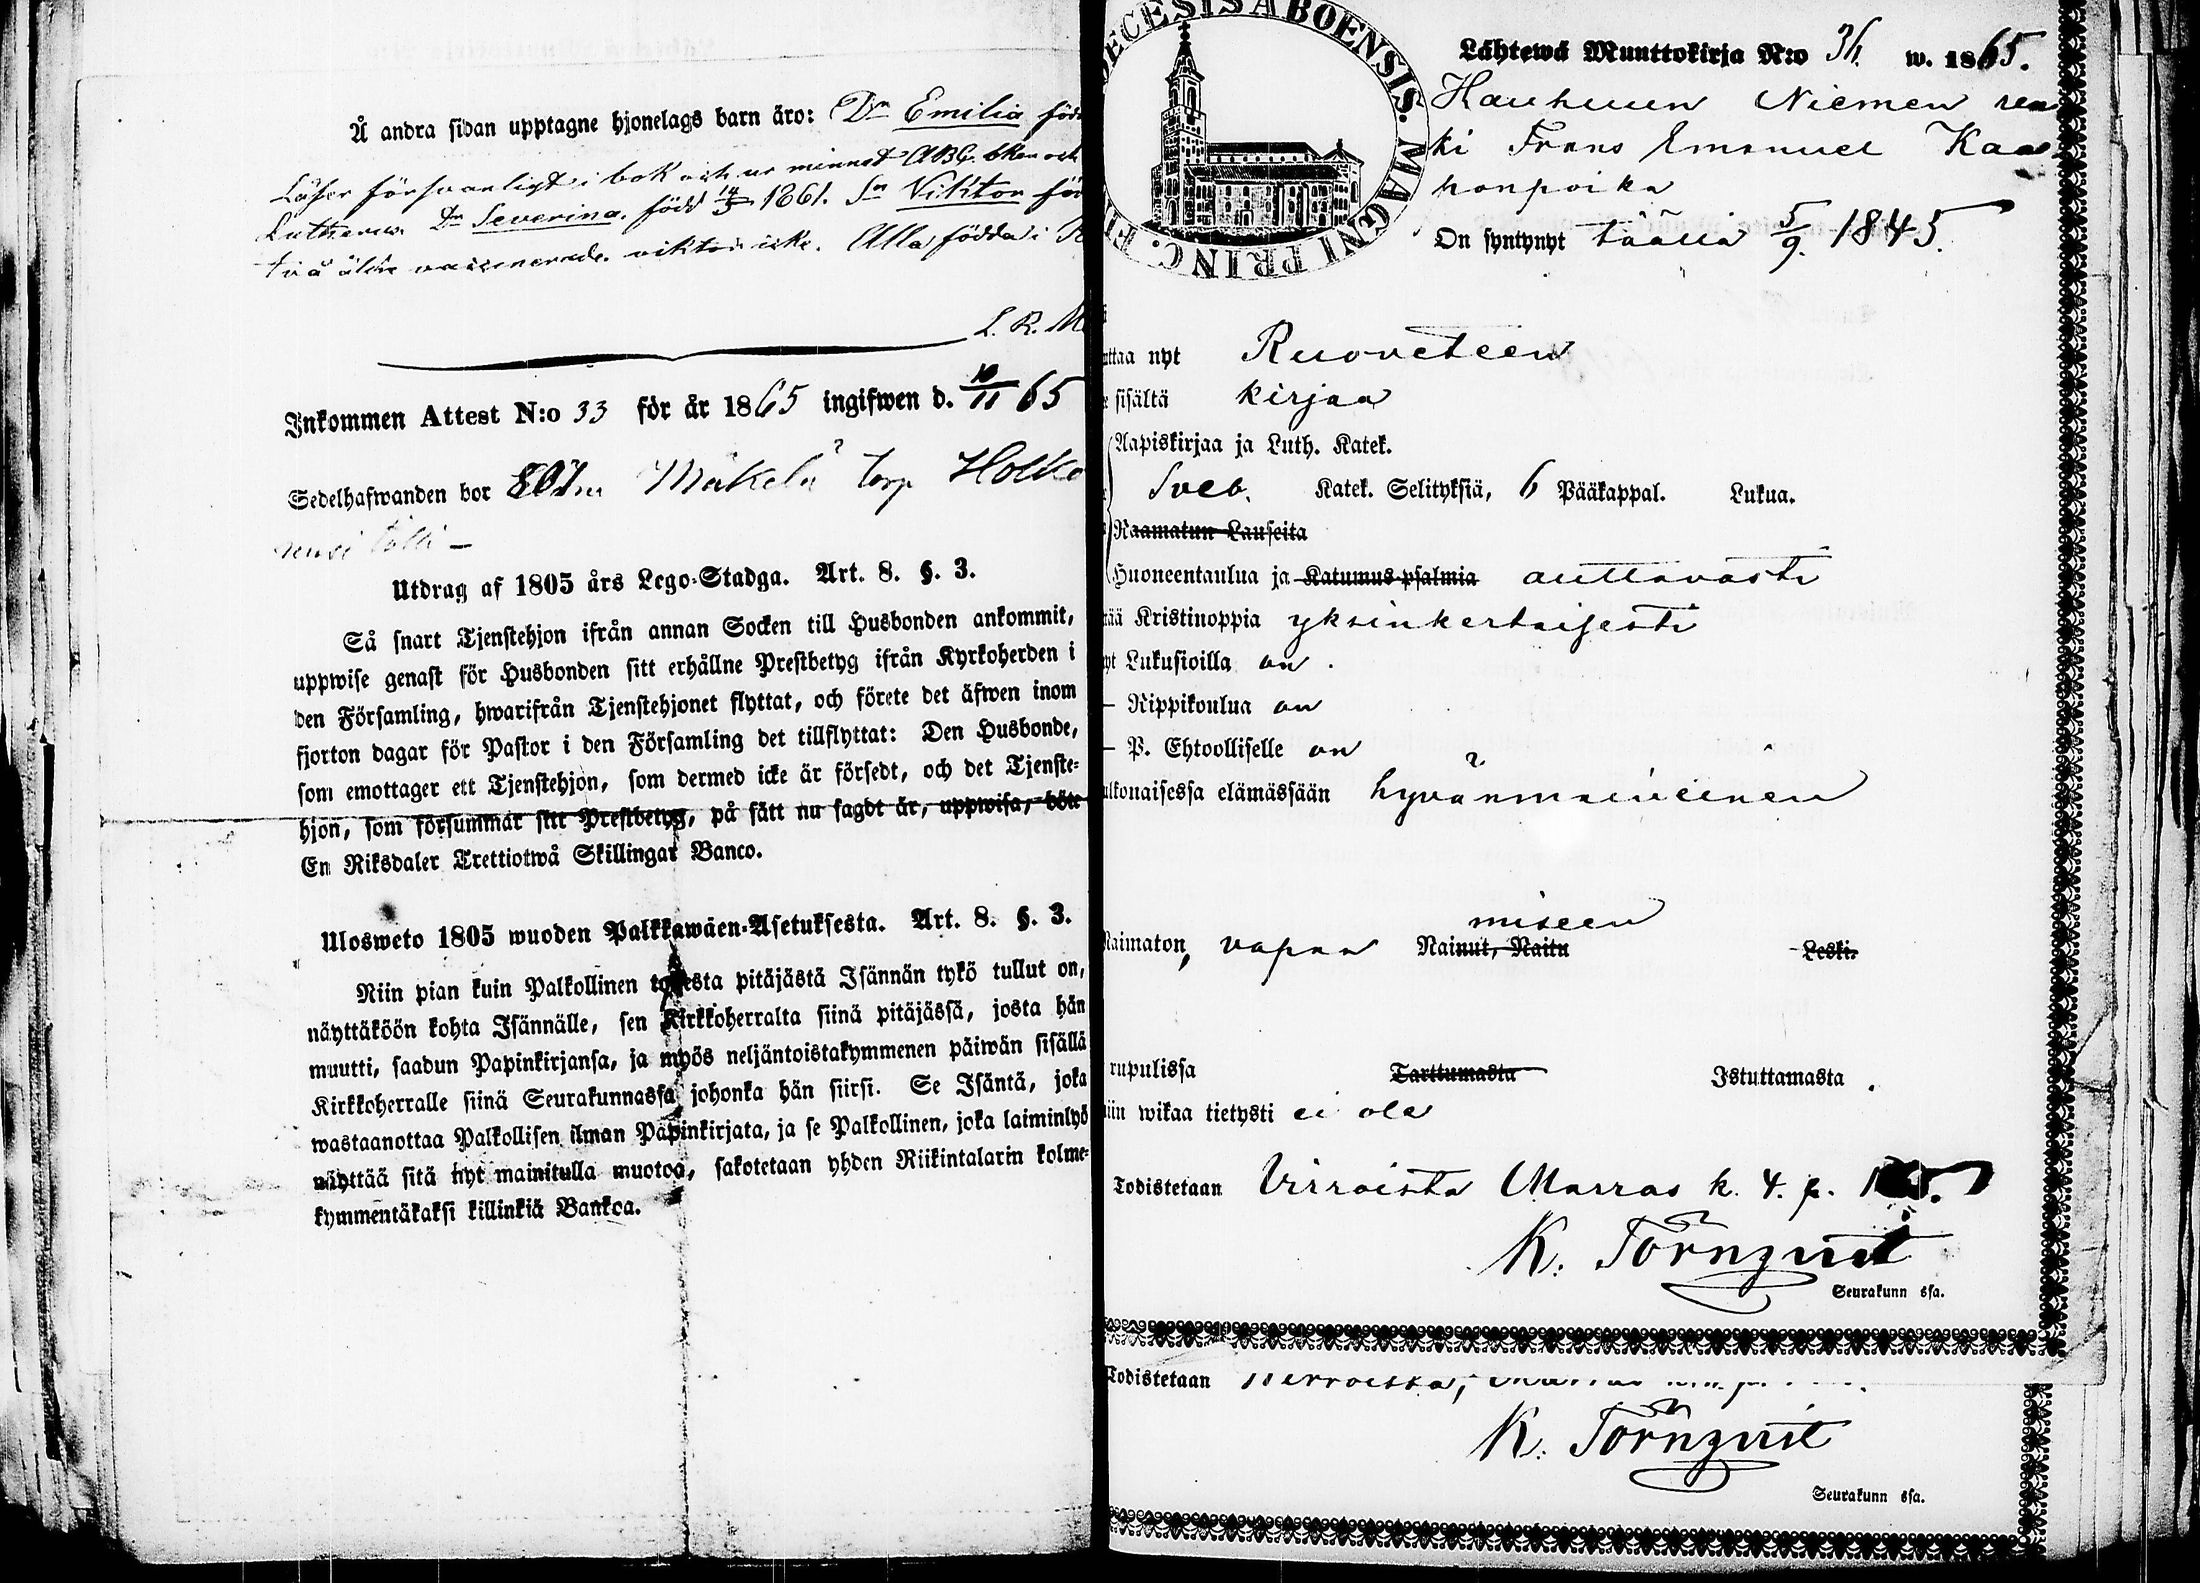 Å andra sidan upptagne hjonelags barn äro: Dr Emilia född
Läser försvarligt i bok och ur minnet ABC boken och
Lutherus. Dr Severina. född 14/5 1861. Sn Viktor föd
två äldre vaccinerade. viktor icke. Alla födda i R
L. R. M
Inkommen Attest N:o 33 för år 1865 ingifwen d. 10/11 65
Sedelhafwanden bor Mäkelä torp Holka
Utdrag af 1805 års Lego-Stadga. Art. 8. §. 3.
Så snart Tjenstehjon ifrån annan Socken till Husbonden ankommit,
uppwise genast för Husbonden sitt erhållne Prestbetyg ifrån Kyrkoherden i
den Församling, hwarifrån Tjenstehjonet flyttat, och förete det äfwen inom
fjorton dagar för Pastor i den Församling det tillflyttat: Den Husbonde,
som emottager ett Tjenstehjon, som dermed icke är försedt, och det Tjenste-
hjon, som försummar sitt Prestbetyg, på sätt nu sagdt är, uppwisa, böte
En Riksdaler Trettiotwå Skillingar Banco.
Ulosweto 1805 wuoden Palkkawäen-Asetuksesta. Art. 8. §. 3.
Niin pian kuin Palkollinen toisesta pitäjästä Isännän tykö tullut on,
näyttäköön kohta Isännälle, sen Kirkkoherralta siinä pitäjässä, josta hän
muutti, saadun Papinkirjansa, ja myös neljäntoistakymmenen päiwän sisällä
Kirkkoherralle siinä Seurakunnassa johonka hän siirsi. Se Isäntä, joka
wastaanottaa Palkollisen ilman Papinkirjata, ja se Palkollinen, joka laiminlyö
näyttää sitä nyt mainitulla muotoa, sakotetaan yhden Riikintalarin kolme-
kymmentäkaksi killinkiä Bankoa.
ECESIS ABOENSIS. MAGNI PRINC. FI
Lähtewä Muuttokirja N:o 36. w. 1865.
Hauhuun Niemen ren
ki Frans Emanuel Kaa
honpoika
On syntynyt täällä 5/9. 1845.
ttaa nyt Ruoveteen
sisältä kirjaa
Aapiskirjaa ja Luth. Katek.
Sveb. Katek. Selityksiä, 6 Pääkappal. Lukua.
Raamatun Lauseita
Huoneentaulua ja Katumus-psalmia auttavasti
tää Kristinoppia yksinkertaisesti
yt Lukusioilla on.
— Rippikoulua on
— P. Ehtoolliselle on
ulkonaisessa elämässään hyvänmaineinen
miseen
Naimaton, vapaa Nainut, Naitu Leski.
rupulissa Tarttumasta Istuttamasta.
iin wikaa tietysti ei ole
Todistetaan Virroista Marras k. 4. p. 1865.
K. Törnqvist
Seurakunn ssa.
Todistetaan
K. Törnqvist
Seurakunn ssa.